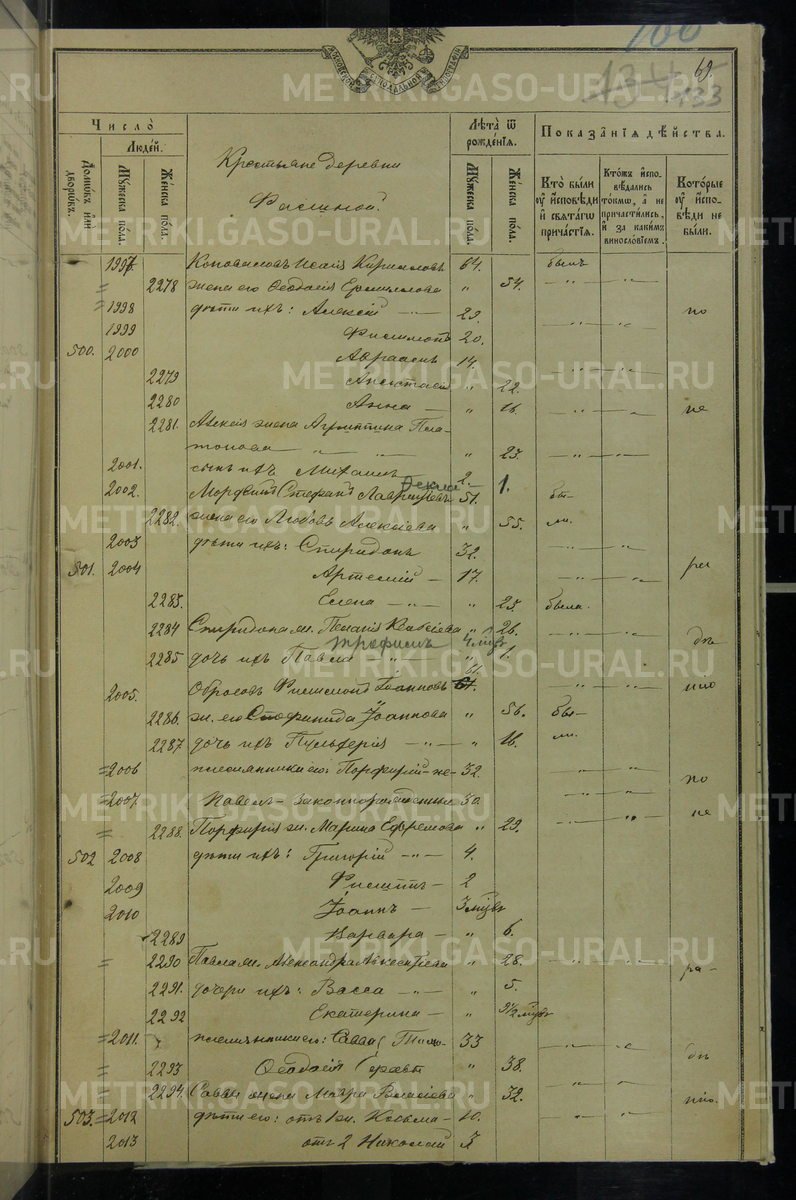 100
134
69.
133
Число̀
Людей.
Домѡвъ или дворѡвъ.
Мужеска по́ла.
Же́нска по́ла.
Крестьяне деревни
Фаминой.
Лѣта̀ ѿ рожде́нїѧ.
Мужеска по́ла.
Же́нска по́ла.
Показа́нїѧ дѣ́йства.
Кто̀ бы́ли ᲂу҆ и҆сповѣди и҆ свѧта́гѡ прича́стїѧ.
Кто́жъ и҆сповѣ́дались то́кмѡ, а҆ не причасти́лись, и҆ за каки́мъ винословїемъ.
Кото́рые ᲂу҆ и҆сповѣди не бы́ли.
1997 Коноваловъ Исаія Кирилловъ 64. былъ
2278 жена его Ѳеодосія Ермиллова " 54.
1998 дѣти ихъ: Алексій 29. по
1999 Филимонъ 20.
500. 2000 Авраамъ 14.
2279 Анастасія " 22.
2280 Анна " 16. не
2281. Алексія жена Агриппина Пла-
тонова " 25.
2001. сынъ ихъ Михаилъ 2.
Ѳекла 1.
2002. Стефанъ Лаврентьевъ 51. бы-
2282. жена его Любовь Алексіева " 55. ли.
2003 дѣти ихъ: Спиридонъ 32.
501. 2004 Артемій 17. ра
2283. Елена " 25. была.
2284 Спиридона ж. Пелагія " 26.
Трофимъ 4 мѣс.
2285 дочь ихъ Павла " 1. дѣ
61.
2005. Обросовъ Филимонъ Іоанновъ нію
2286. ж. его Стефанида Іоаннова " 56. бы-
2287 дочь ихъ Пульхерія " 16. ли.
2006 племянники его: Порфирій-не- 32. по
2007 Павелъ - законнорожденные 30.
2288. Порфирія ж. Марина Ефремова " 29. не
502 2008 дѣти ихъ: Григорій 4.
2009 Филиппъ 2
2010 Іоаннъ 3 мѣс.
2289 Варвара " 6.
2290 Павла ж. Александра Алексѣева " 28. ра-
2291. дочери ихъ: Васса " 5.
2292 Екатерина "
2011. племянники его: Савва 33
2293 Ѳеодосія " 38. дѣ
2294. Саввы жена Мавра " 32.
503. 2012 дѣти его: отъ 1 ж. Косьма 10. нію.
2013 отъ 2 Николай 3
METRIKI.GASO-URAL.RU